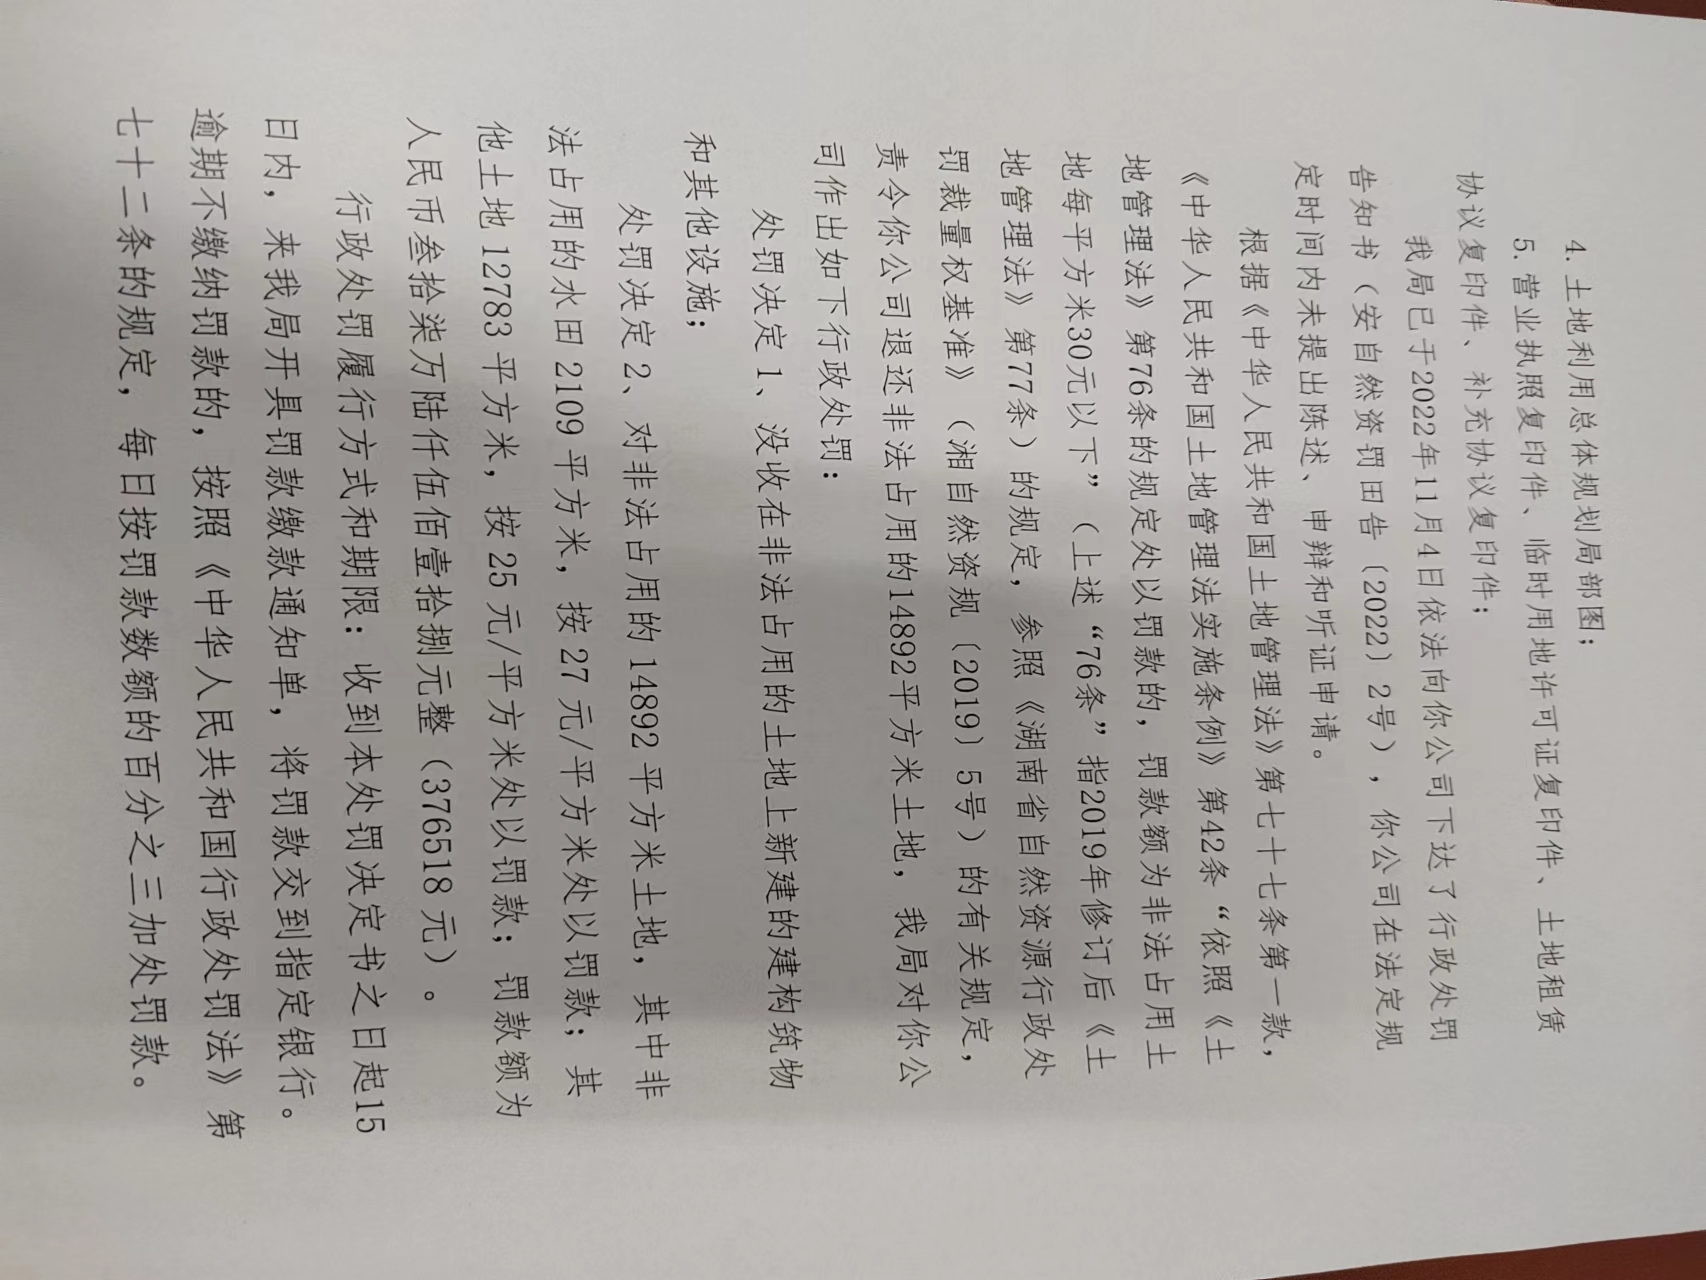 4. 土地利用总体规划局部图；
5. 营业执照复印件、临时用地许可证复印件、土地租赁
协议复印件、补充协议复印件；
我局已于2022年11月4日依法向你公司下达了行政处罚
告知书（安自然资罚田告〔2022〕2号），你公司在法定规
定时间内未提出陈述、申辩和听证申请。
根据《中华人民共和国土地管理法》第七十七条第一款，
《中华人民共和国土地管理法实施条例》第42条“依照《土
地管理法》第76条的规定处以罚款的，罚款额为非法占用土
地每平方米30元以下”（上述“76条”指2019年修订后《土
地管理法》第77条）的规定，参照《湖南省自然资源行政处
罚裁量权基准》（湘自然资规〔2019〕5号）的有关规定，
责令你公司退还非法占用的14892平方米土地，我局对你公
司作出如下行政处罚：
处罚决定1、没收在非法占用的土地上新建的建构筑物
和其他设施；
处罚决定2、对非法占用的14892平方米土地，其中非
法占用的水田2109平方米，按27元/平方米处以罚款；其
他土地12783平方米，按25元/平方米处以罚款；罚款额为
人民币叁拾柒万陆仟伍佰壹拾捌元整（376518元）。
行政处罚履行方式和期限：收到本处罚决定书之日起15
日内，来我局开具罚款缴款通知单，将罚款交到指定银行。
逾期不缴纳罚款的，按照《中华人民共和国行政处罚法》第
七十二条的规定，每日按罚款数额的百分之三加处罚款。